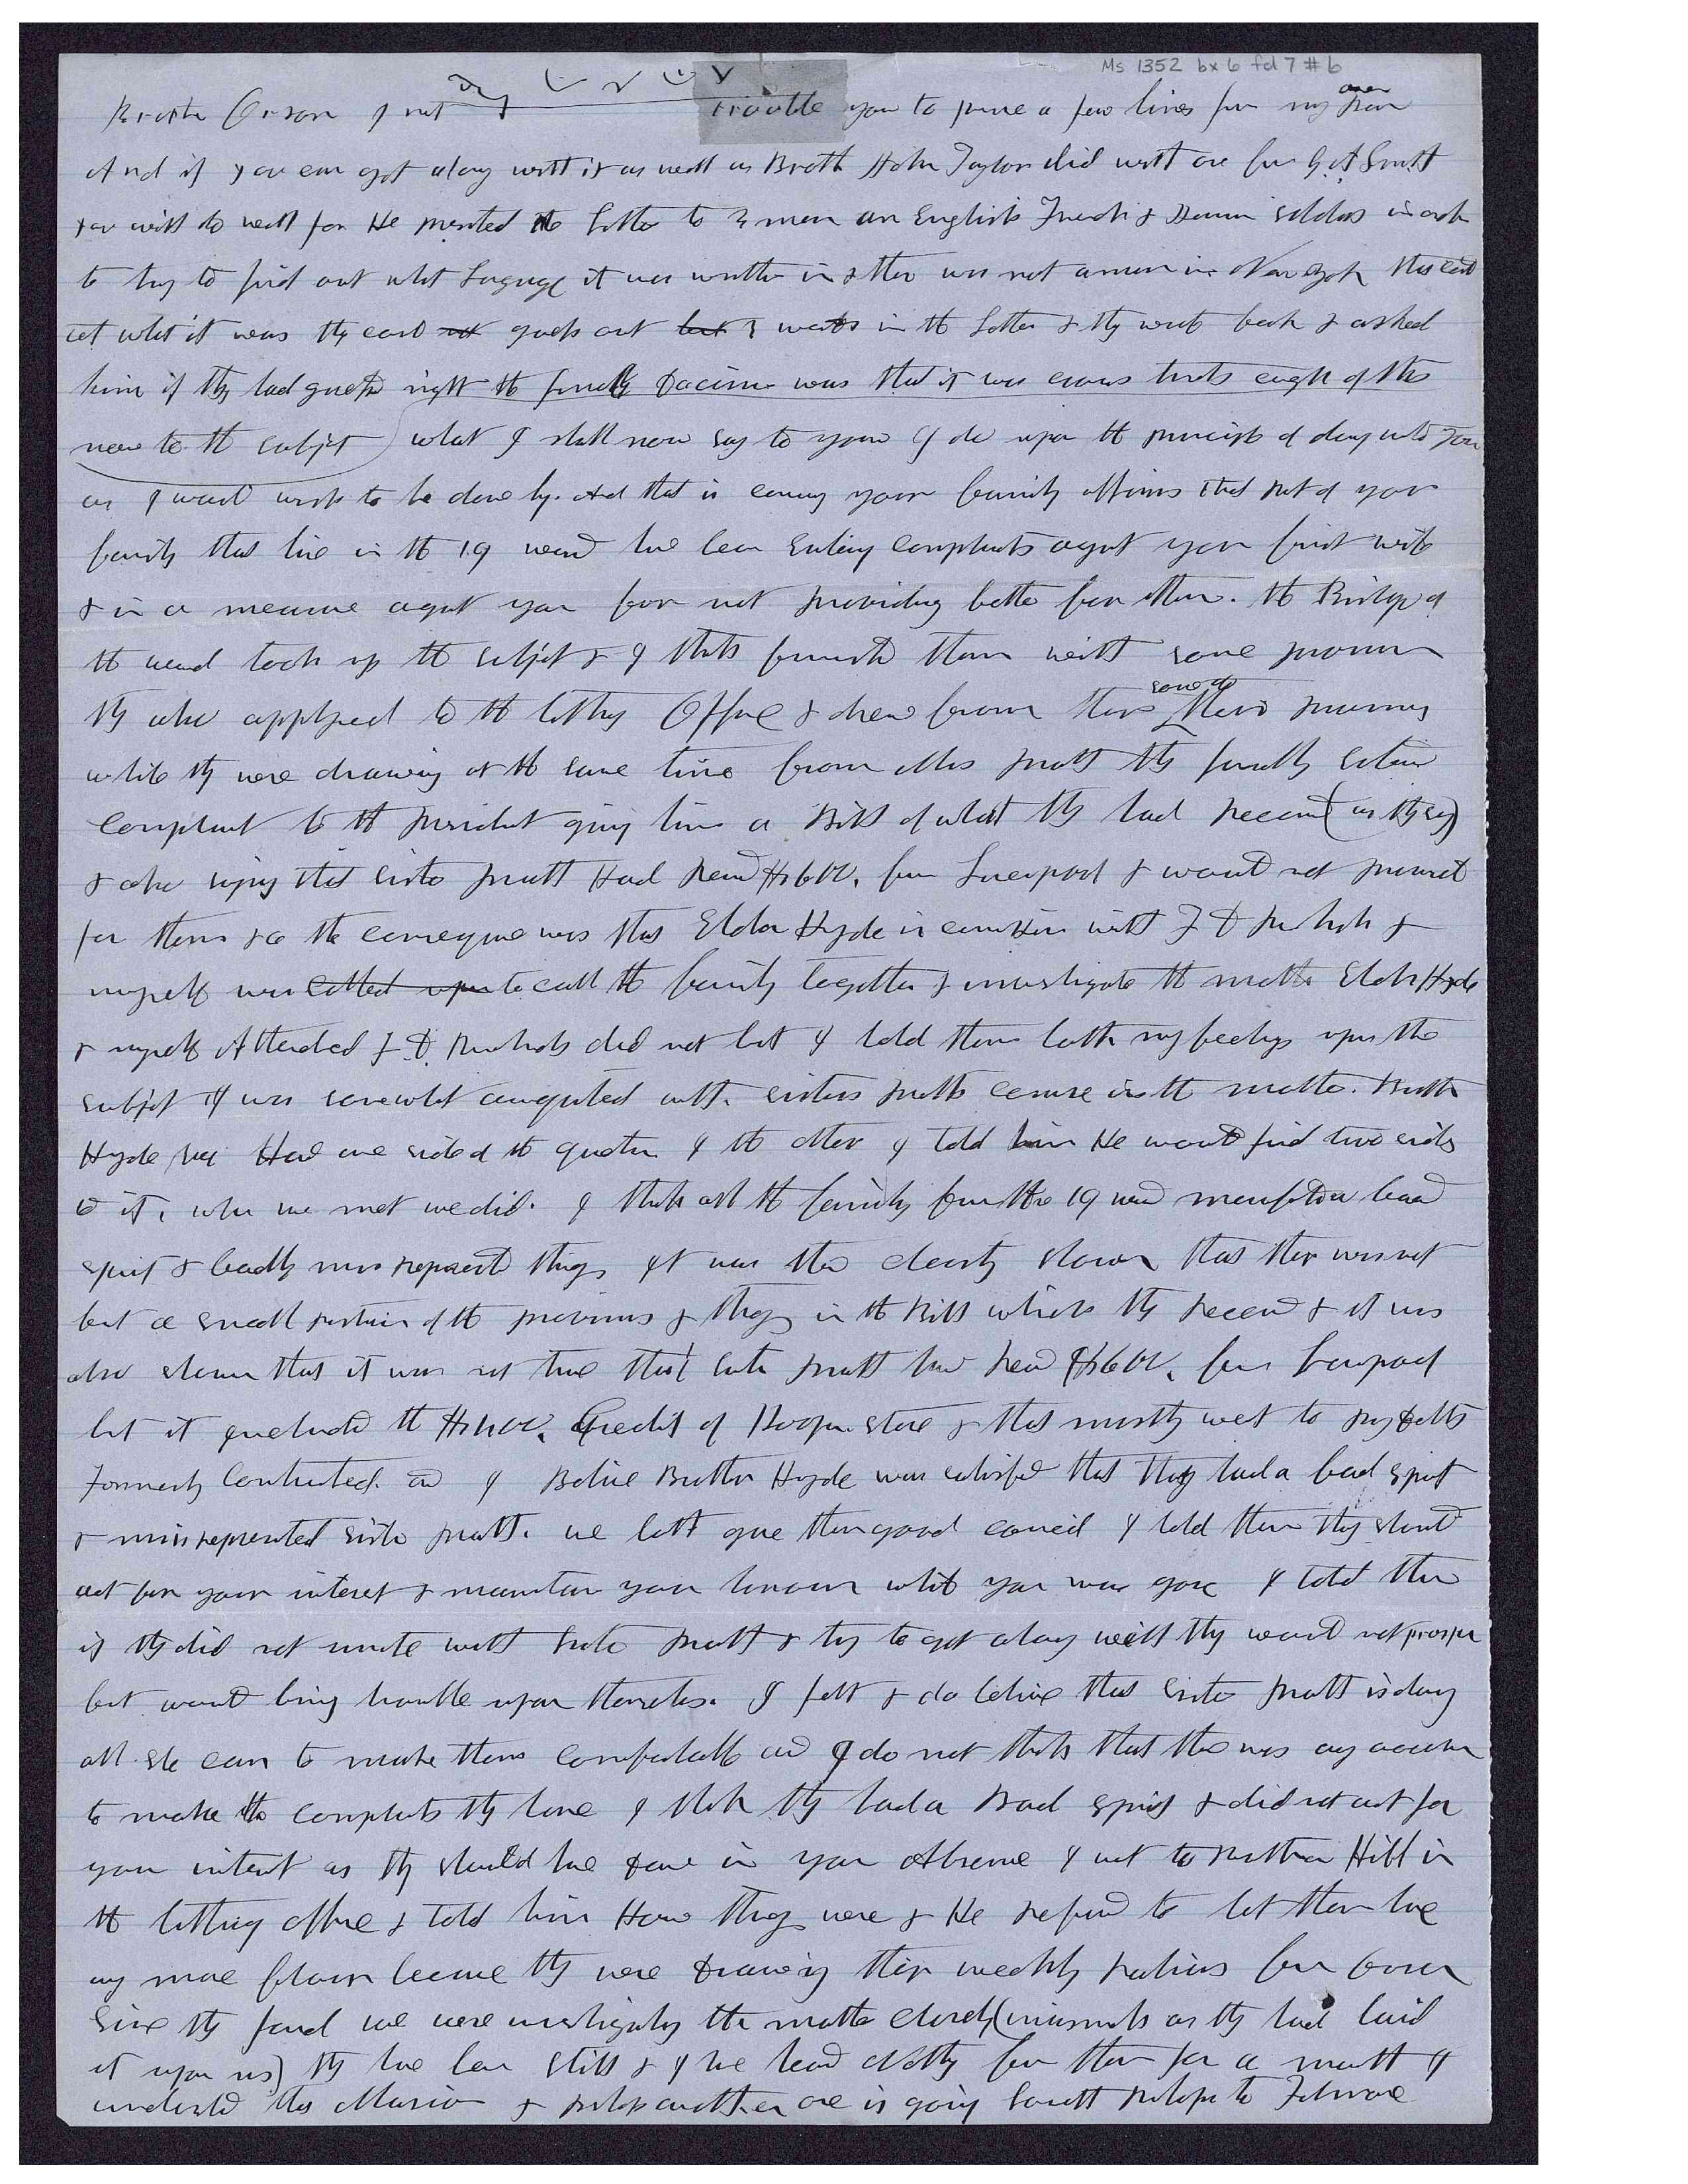 Ms 1352 bx 6 fd 7 # 6
Brother Orson I not trouble you to peruse a few lines from my pen
And if you can get along with it as well as Broth John Taylor did with one from G. A Smith
you will do well for He presented the Letter to 3 men an English French & German scholars in order
to try to find out what Language it was written in & ther was not a man in New York that could
tell what it was they could not guess out but 3 words in the Letter & they went back & asked
him if they had guessd right the finally Dacision was that it was crows tracks enough of this
now to the subject what I shall now say to you I do upon the principle of doing unto you
as I would wish to be done by. And that is concerning your family affairs that part of your
family that live in the 19 ward have been Entering complaints against your first wife
& in a measure against you for not providing better for them. the Bishop of
the ward took up the subject & I think furnished them with some provisions
they also applyed to the tithing Office & drew from there some of their provisions
while they were drawing at the same time from Mrs Pratt they finally entered
complaint to the President giving him a Bill of what they had received (as they say)
& also saying that sister Pratt Had received $1600. from Liverpool & would not provide
for them & the consequence was that Elder Hyde in connexion with F D Richards &
myself was called upon to call the family together & investigate the matter Elder Hyde
& myself Attended F. D. Richards did not but I told them both my feelings upon the
subject I was somewhat acquainted with sisters Pratts course in the matter. Brother
Hyde Had one side of the question & the other I told him He would find two sides
to it, when we met we did. I think all the family from the 19 ward manifested a bad
spirit & badly misrepresented things It was then clearly shown that ther was not
but a small portion of the provisions & things in the Bill which they received & it was
also shown that it was not true that sister Pratt had received $1600. from Liverpool
but it included the Credit of Hooper store & that mostly went to pay debts
Formerly Contracted. and I Belive Brother Hyde was satisfied that they had a bad spirit
& misrepresented sister Pratt. we both gave them good council & told them they should
act for your interest & maintain your honour while you was gone I told them
if they did not unite with sister Pratt & try to get along well they would not prosper
but would bring trouble upon themselves. I felt & do belive that sister Pratt is doing
all she can to make them comfortable and I do not think that there was any occasion
to make the complaints they have I think they had a Bad spirit & did not act for
your interest as they should have done in your Absence I went to Brother Hill in
the tithing office & told him How things were & He refused to let them have
any more flour because they were drawing their weekly rations from
Since they found we were investigating the matter closely (inasmuch as they had laid
it upon us) they have been still & I have heard Nothing from them for a month I
understand that Marion & perhaps another one is going South perhaps to Filmore